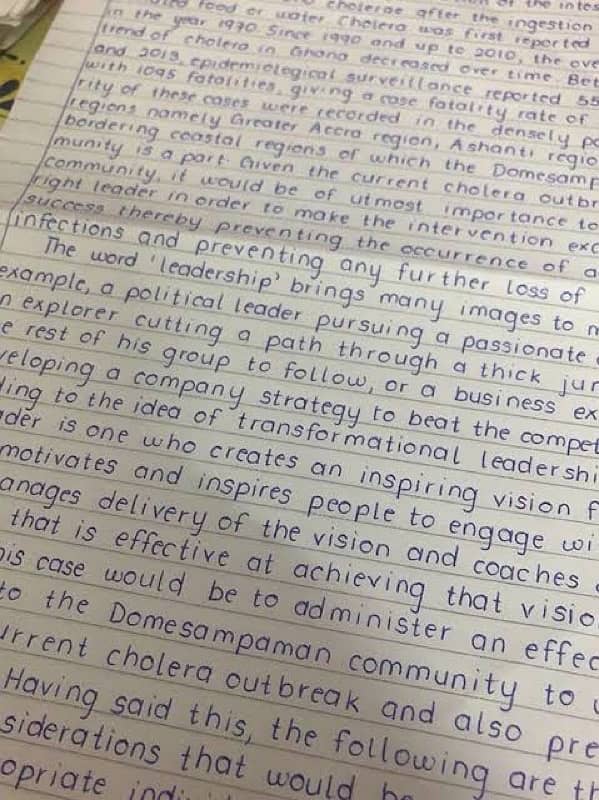 cholerae after the ingestion
food or water Cholera was first reported
in the year 1970. Since 1990 and up to 2010, the ove
trend of cholera in Ghana decreased over time. Bet
and 2013, epidemiological surveillance reported 55
with 1095 fatalities, giving a case fatality rate of
rity of these cases were recorded in the densely po
regions namely Greater Accra region, Ashanti regio
bordering coastal regions of which the Domesamp
munity is a part. Given the current cholera outbr
community, it would be of utmost importance to
right leader in order to make the intervention exc
success thereby preventing the occurrence of a
infections and preventing any further loss of
The word 'leadership' brings many images to m
example, a political leader pursuing a passionate
n explorer cutting a path through a thick jun
e rest of his group to follow, or a business ex
veloping a company strategy to beat the compet
ding to the idea of transformational leadershi
der is one who creates an inspiring vision f
motivates and inspires people to engage wi
anages delivery of the vision and coaches
that is effective at achieving that visio
is case would be to administer an effec
to the Domesampaman community to
urrent cholera outbreak and also pre
Having said this, the following are th
siderations that would be
opriate